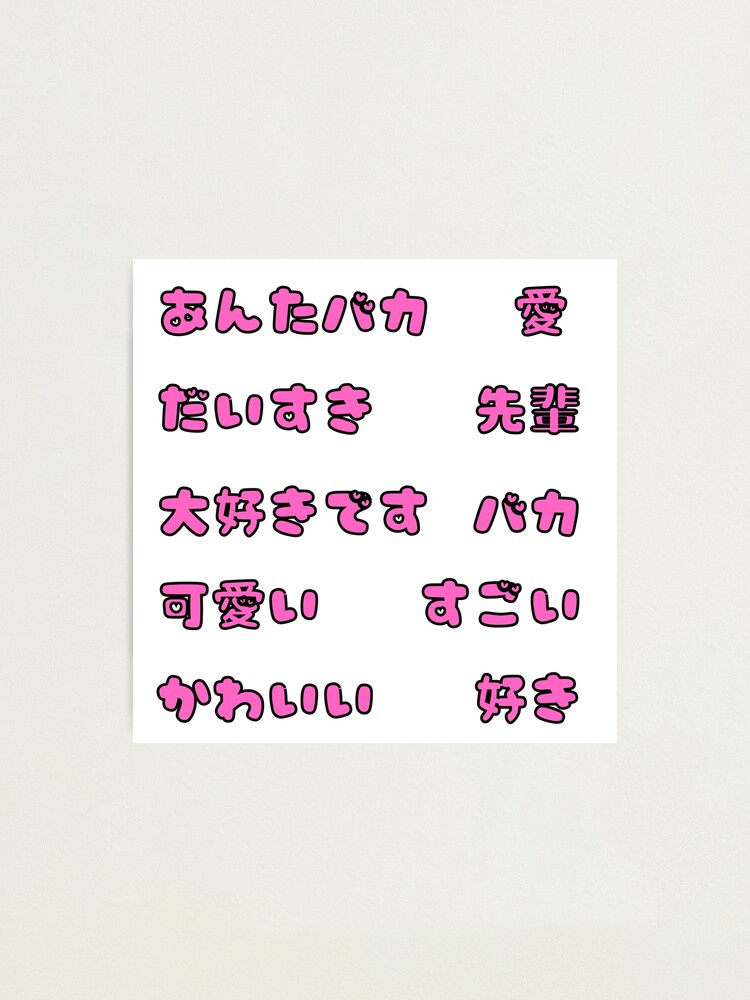 あんたバカ 愛
だいすき 先輩
大好きです バカ
可愛い すごい
かわいい 好き